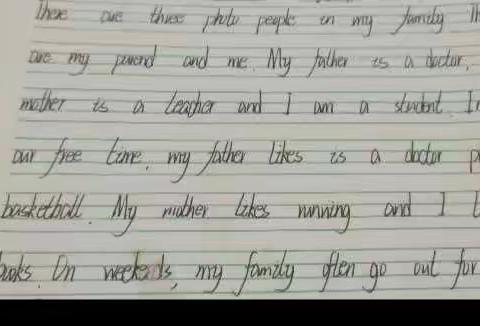 There are three photo people in my family
are my parend and me. My father is a doctor,
mother is a teacher and I am a student. In
our free time, my father likes is a doctor
basketball. My mother likes running and I
books. On weekends, my family often go out for